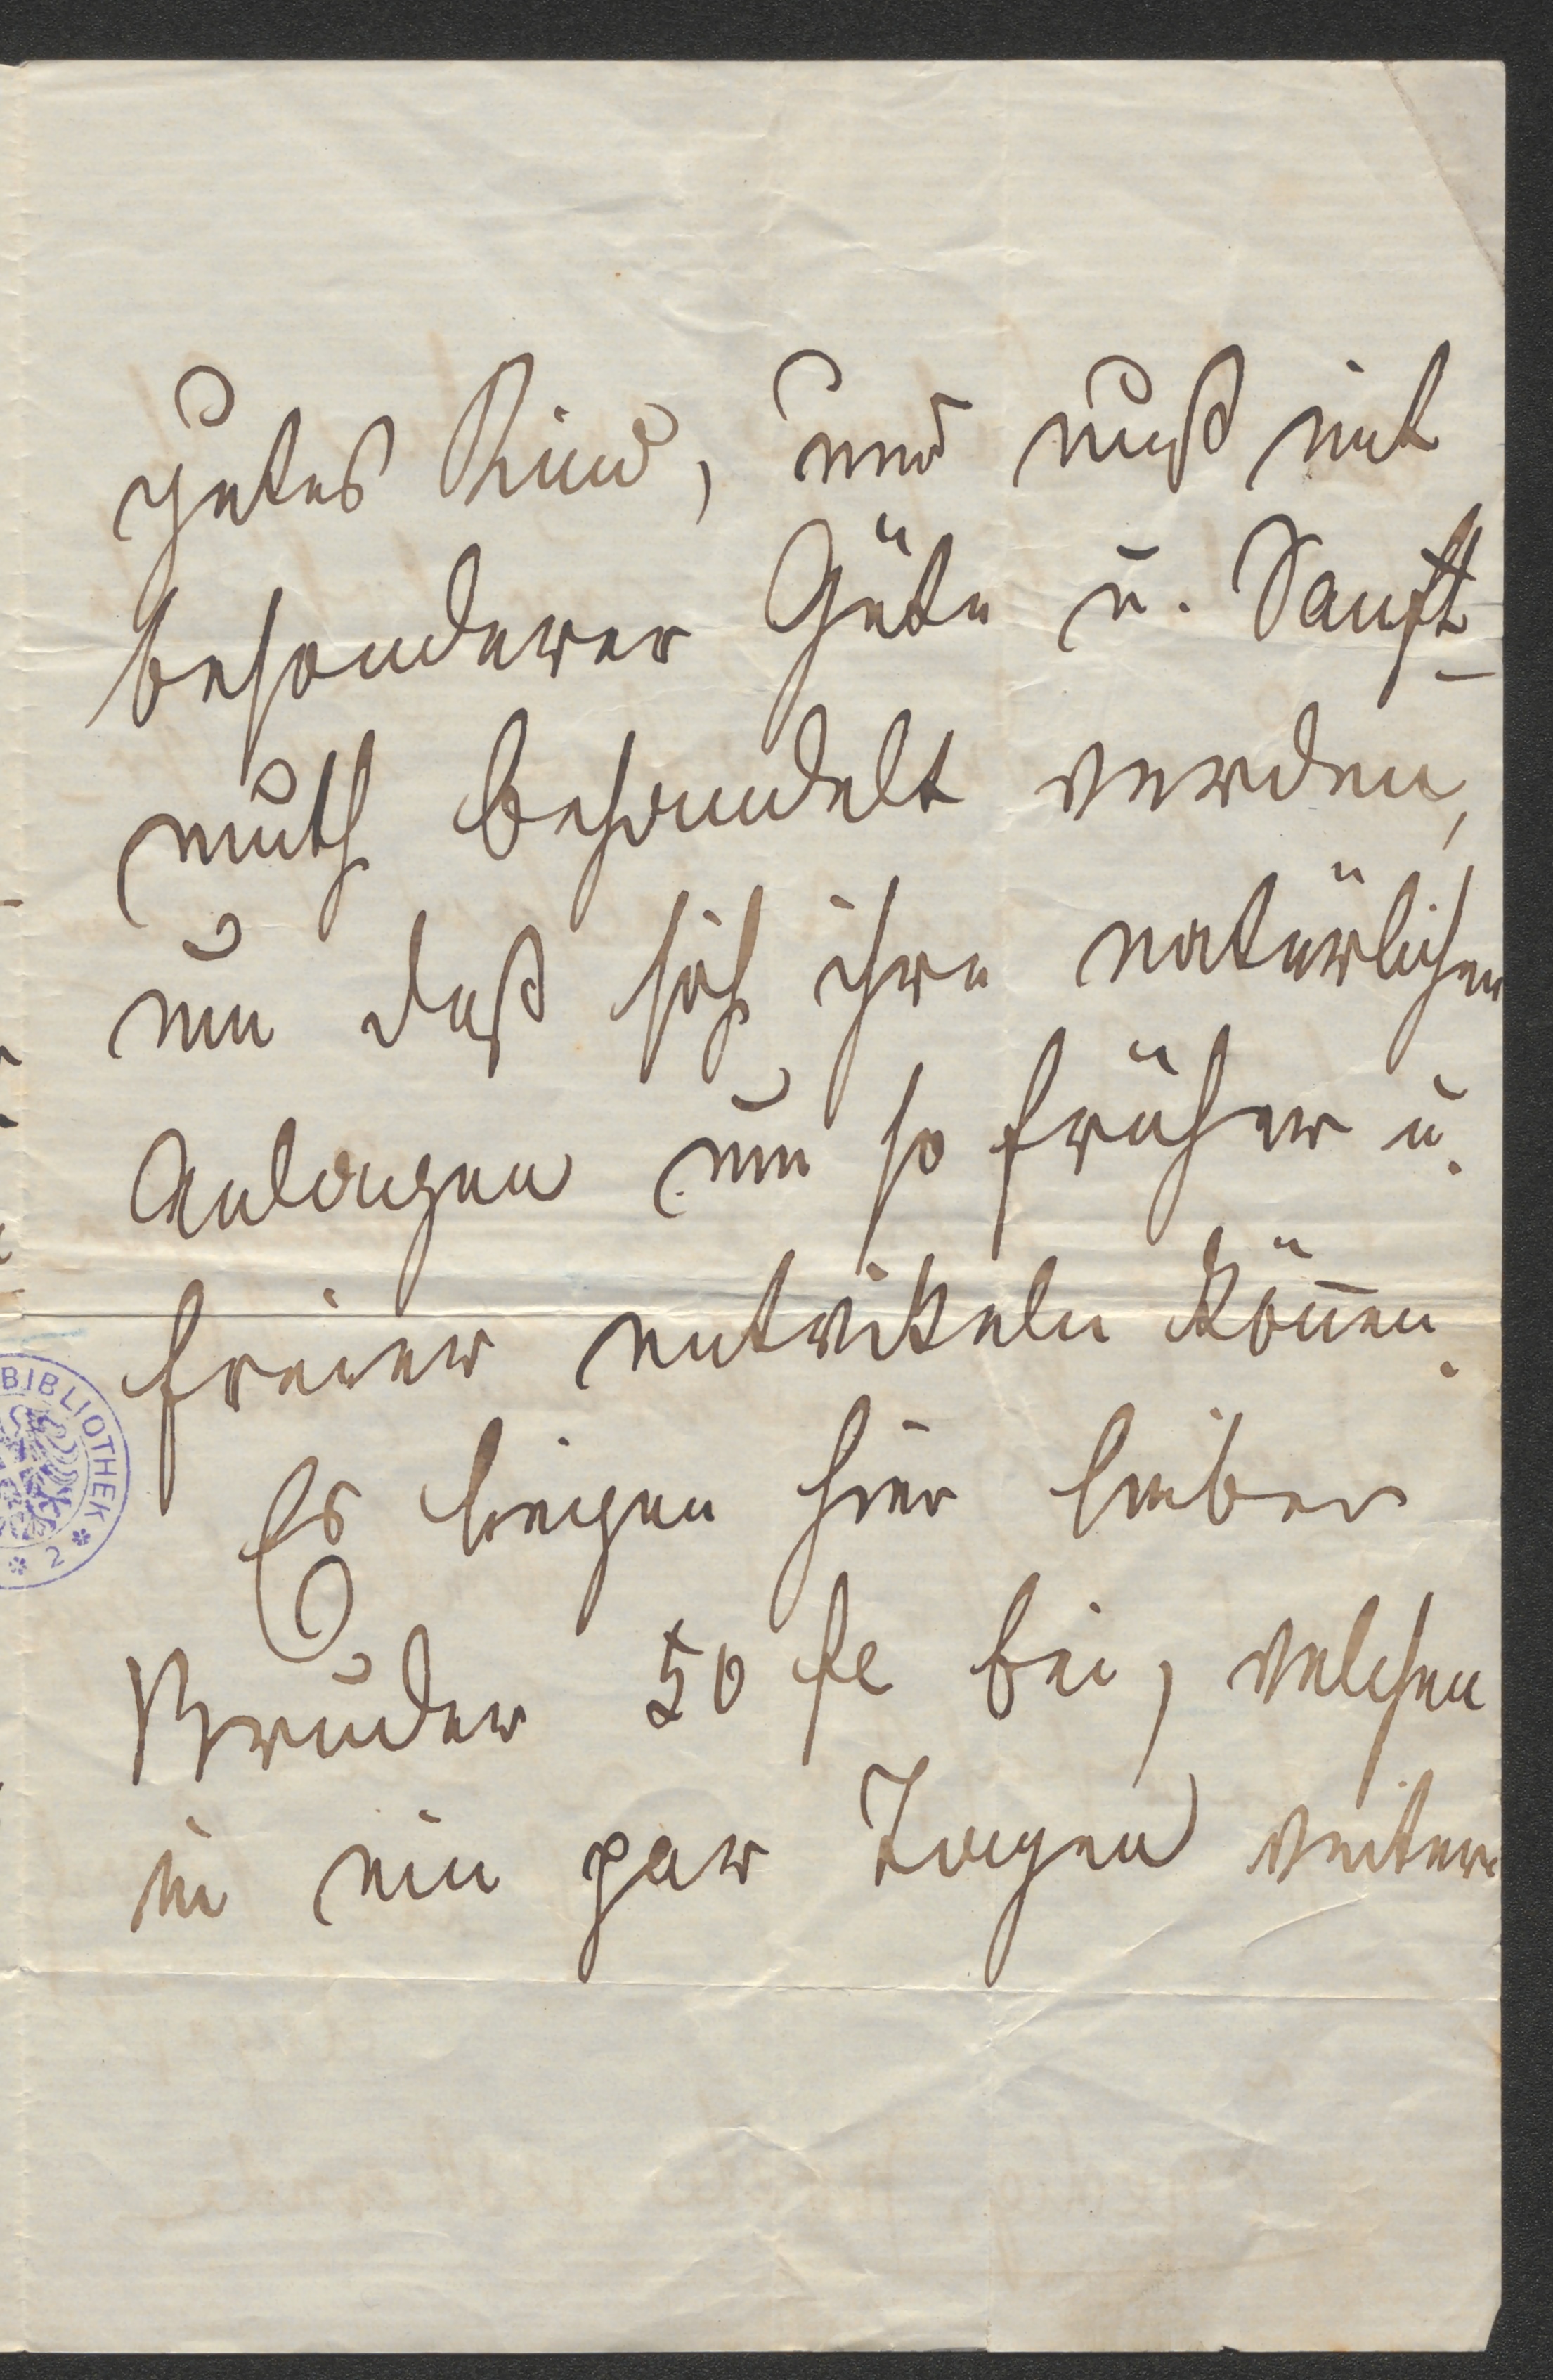 gutes Kind, und muß mit
besonderer Güte u. Sanft-
muth behandelt werden,
um daß sich ihre natürlichen
Anlagen um so früher u.
freier entwikeln könen.
Es liegen hier lieber
Bruder 50 fl bei, welchen
in ein par Tagen weitere
BIBLIOTHEK
* 2 *